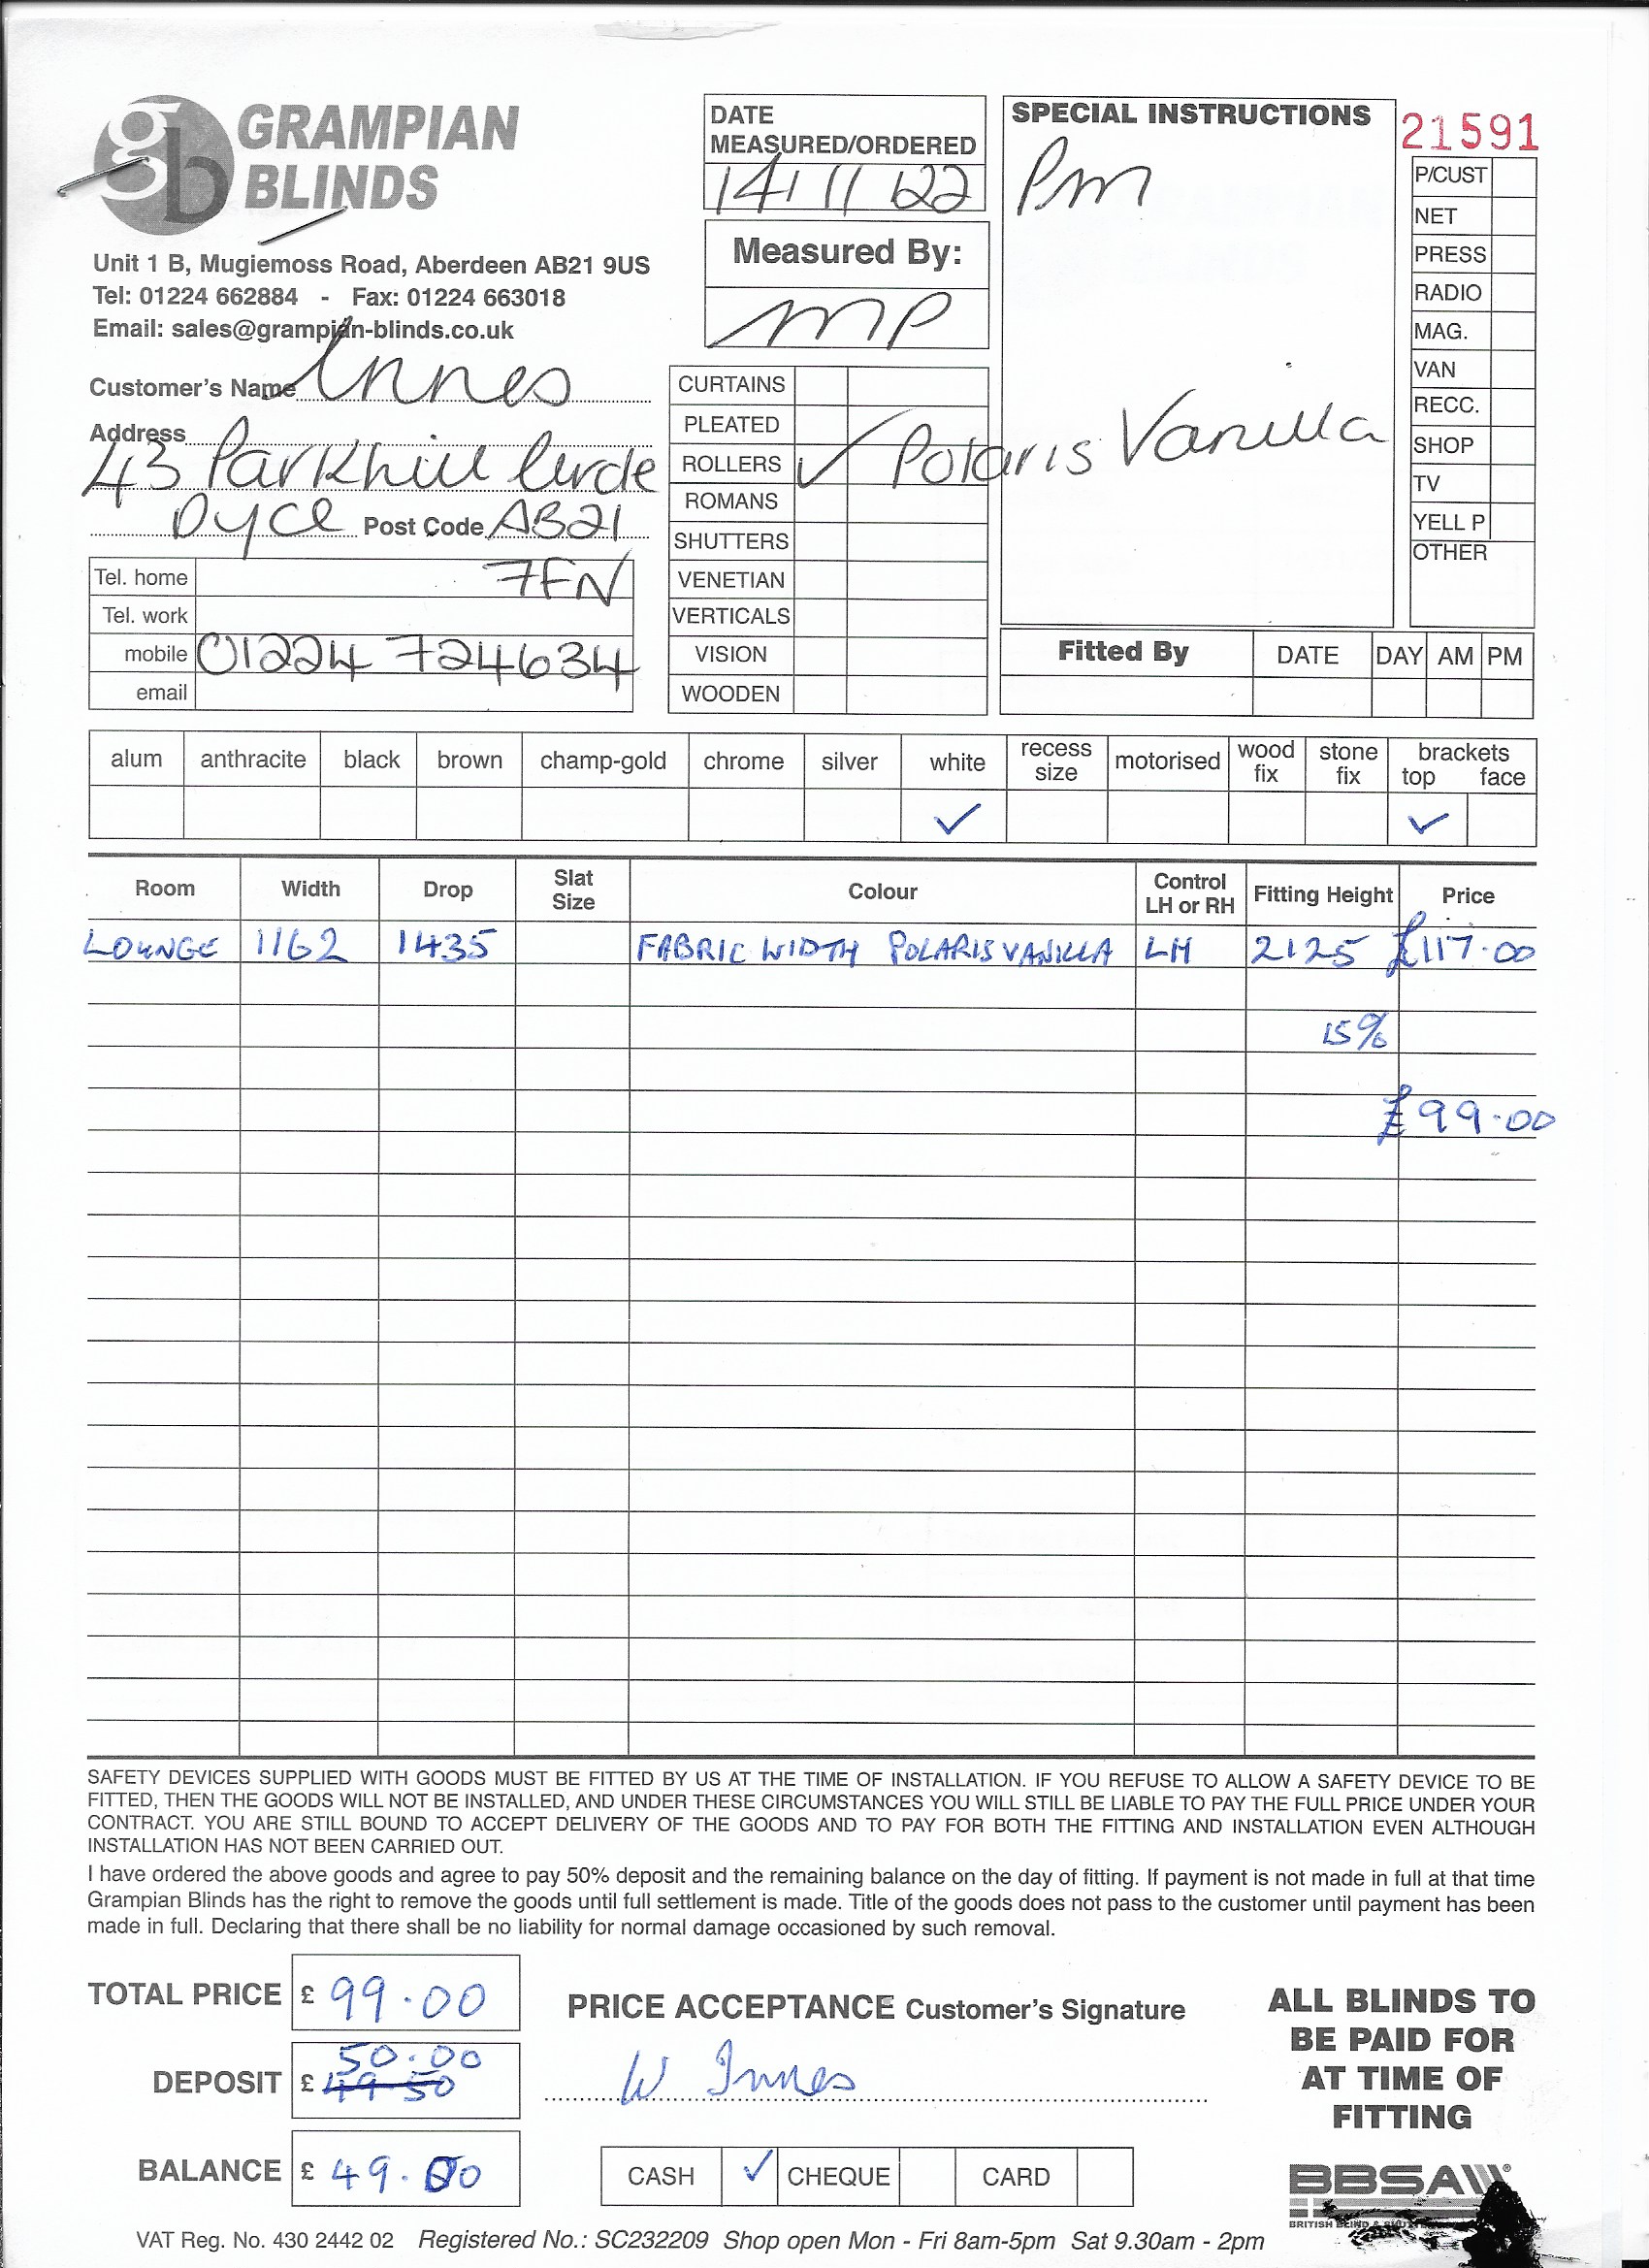 gb GRAMPIAN BLINDS
Unit 1 B, Mugiemoss Road, Aberdeen AB21 9US
Tel: 01224 662884 - Fax: 01224 663018
Email: sales@grampian-blinds.co.uk
Customer's Name Innes
Address
43 Parkhill Circle
Dyce Post Code AB21
7FN
Tel. home
Tel. work
mobile 01224 724634
email
DATE
MEASURED/ORDERED
14/11/22
Measured By:
MP
CURTAINS
PLEATED
ROLLERS ✓ Polaris Vanilla
ROMANS
SHUTTERS
VENETIAN
VERTICALS
VISION
WOODEN
SPECIAL INSTRUCTIONS
Pm
21591
P/CUST
NET
PRESS
RADIO
MAG.
VAN
RECC.
SHOP
TV
YELL P
OTHER
Fitted By DATE DAY AM PM
alum anthracite black brown champ-gold chrome silver white recess size motorised wood fix stone fix brackets top face
✓ ✓
Room Width Drop Slat Size Colour Control LH or RH Fitting Height Price
LOUNGE 1162 1435 FABRIC WIDTH POLARIS VANILLA LH 2125 £117.00
15%
£99.00
SAFETY DEVICES SUPPLIED WITH GOODS MUST BE FITTED BY US AT THE TIME OF INSTALLATION. IF YOU REFUSE TO ALLOW A SAFETY DEVICE TO BE
FITTED, THEN THE GOODS WILL NOT BE INSTALLED, AND UNDER THESE CIRCUMSTANCES YOU WILL STILL BE LIABLE TO PAY THE FULL PRICE UNDER YOUR
CONTRACT. YOU ARE STILL BOUND TO ACCEPT DELIVERY OF THE GOODS AND TO PAY FOR BOTH THE FITTING AND INSTALLATION EVEN ALTHOUGH
INSTALLATION HAS NOT BEEN CARRIED OUT.
I have ordered the above goods and agree to pay 50% deposit and the remaining balance on the day of fitting. If payment is not made in full at that time
Grampian Blinds has the right to remove the goods until full settlement is made. Title of the goods does not pass to the customer until payment has been
made in full. Declaring that there shall be no liability for normal damage occasioned by such removal.
TOTAL PRICE £ 99.00
50.00
DEPOSIT £ 49.50
BALANCE £ 49.00
PRICE ACCEPTANCE Customer's Signature
W Innes
CASH ✓ CHEQUE CARD
ALL BLINDS TO
BE PAID FOR
AT TIME OF
FITTING
BBSA
BRITISH BLIND &
VAT Reg. No. 430 2442 02 Registered No.: SC232209 Shop open Mon - Fri 8am-5pm Sat 9.30am - 2pm